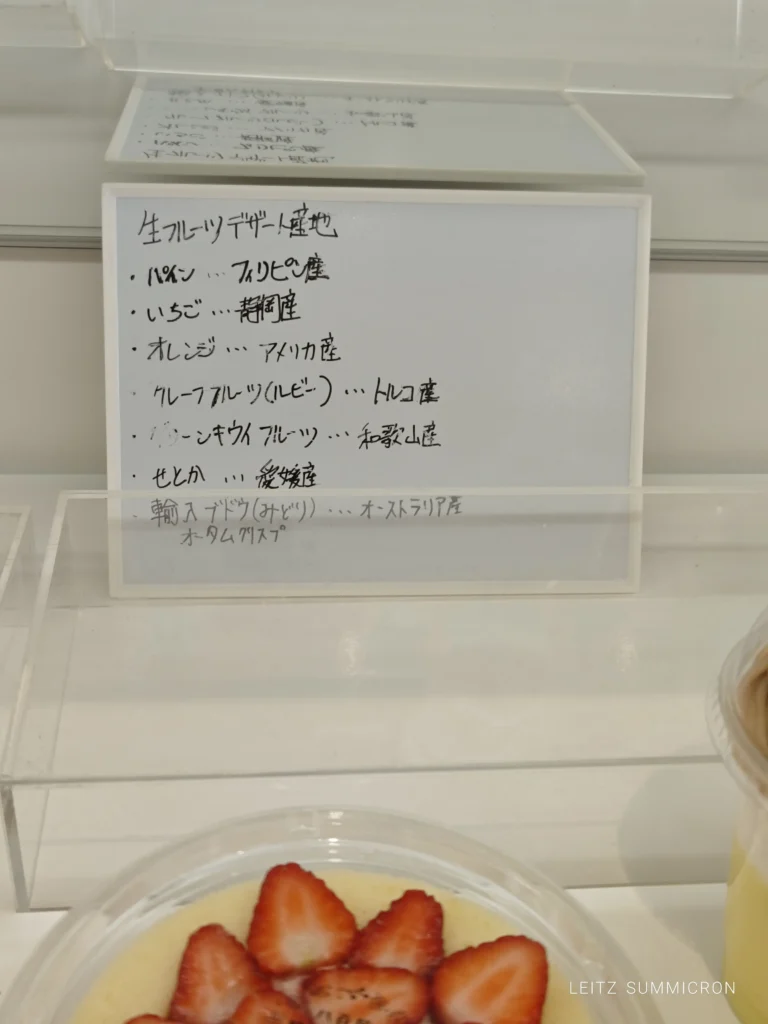 生フルーツデザート産地
・パイン…フィリピン産
・いちご…静岡産
・オレンジ…アメリカ産
・グレープフルーツ(ルビー)…トルコ産
・グリーンキウイフルーツ…和歌山産
・せとか…愛媛産
・輸入ブドウ(みどり)…オーストラリア産
オータムクリスプ
LEITZ SUMMICRON